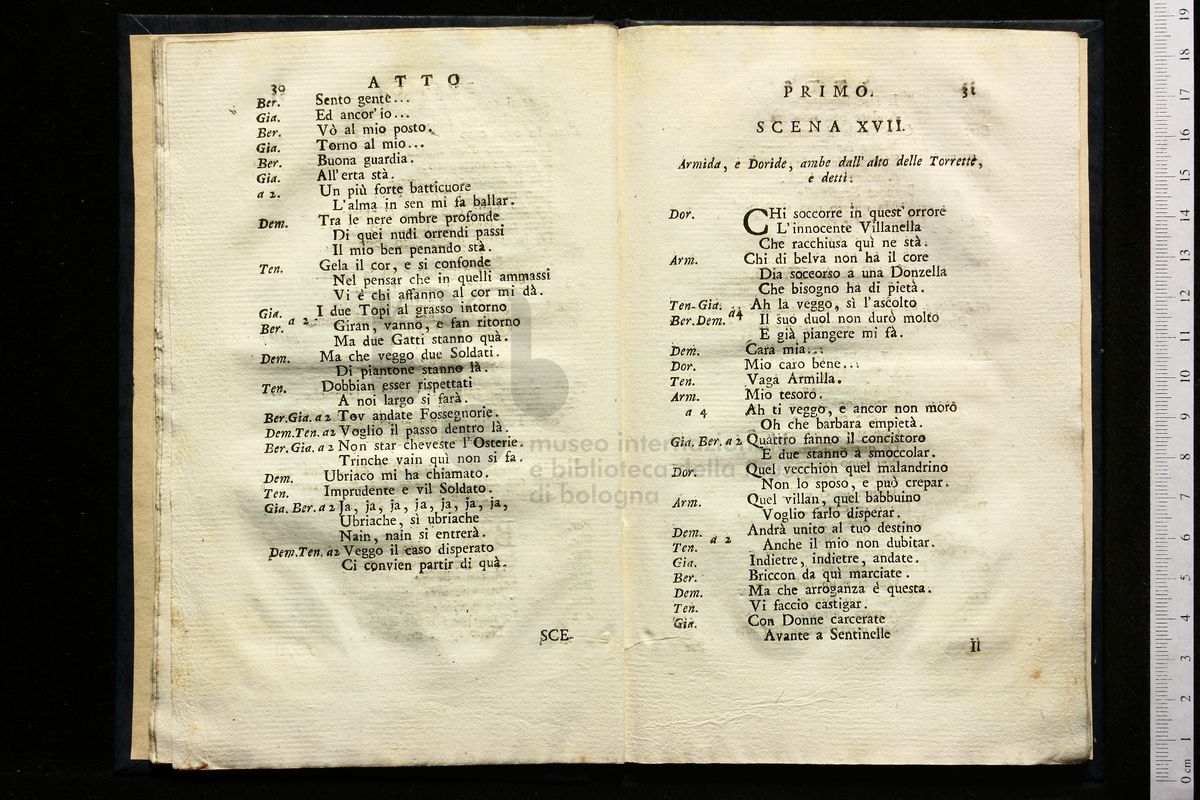 30
ATTO
Ber. Sento gente...
Gia. Ed ancor' io...
Ber. Vò al mio posto.
Gia. Torno al mio...
Ber. Buona guardia.
Gia. All' erta stà.
a 2. Un più forte batticuore
L'alma in sen mi fa ballar.
Dem. Tra le nere ombre profonde
Di quei nudi orrendi passi
Il mio ben penando stà.
Ten. Gela il cor, e si confonde
Nel pensar che in quelli ammassi
Vi è chi affanno al cor mi dà.
Gia. I due Topi al grasso intorno
Ber. a 2. Giran, vanno, e fan ritorno
Ma due Gatti stanno quà.
Dem. Ma che veggo due Soldati.
Di piantone stanno là.
Ten. Dobbian esser rispettati
A noi largo si farà.
Ber.Gia. a 2 Tov andate Fossegnorie.
Dem.Ten. a2 Voglio il passo dentro là.
Ber.Gia. a 2 Non star cheveste l'Osterie.
Trinche vain quì non si fa.
Dem. Ubriaco mi ha chiamato.
Ten. Imprudente e vil Soldato.
Gia. Ber. a 2 Ja, ja, ja, ja, ja, ja, ja,
Ubriache, sì ubriache
Nain, nain si entrerà.
Dem.Ten. a2 Veggo il caso disperato
Ci convien partir di quà.
SCE-
PRIMO.
31
SCENA XVII.
Armida, e Doride, ambe dall' alto delle Torrette,
e detti.
Dor. CHi soccorre in quest' orrore
L'innocente Villanella
Che racchiusa quì ne stà.
Arm. Chi di belva non ha il core
Dia soceorso a una Donzella
Che bisogno ha di pietà.
Ten-Gia. Ah la veggo, sì l'ascolto
Ber.Dem. a4 Il suo duol non durò molto
E già piangere mi fà.
Dem. Cara mia...
Dor. Mio caro bene...
Ten. Vaga Armilla.
Arm. Mio tesoro.
a 4 Ah ti veggo, e ancor non morò
Oh che barbara empietà.
Gia. Ber. a 2 Quattro fanno il concistoro
E due stanno a smoccolar.
Dor. Quel vecchion quel malandrino
Non lo sposo, e può crepar.
Arm. Quel villan, quel babbuino
Voglio farlo disperar.
Dem. Andrà unito al tuo destino
Ten. a 2 Anche il mio non dubitar.
Gia. Indietre, indietre, andate.
Ber. Briccon da quì marciate.
Dem. Ma che arroganza è questa.
Ten. Vi faccio castigar.
Gia. Con Donne carcerate
Avante a Sentinelle
Il
museo internazio
e biblioteca della
di bologna